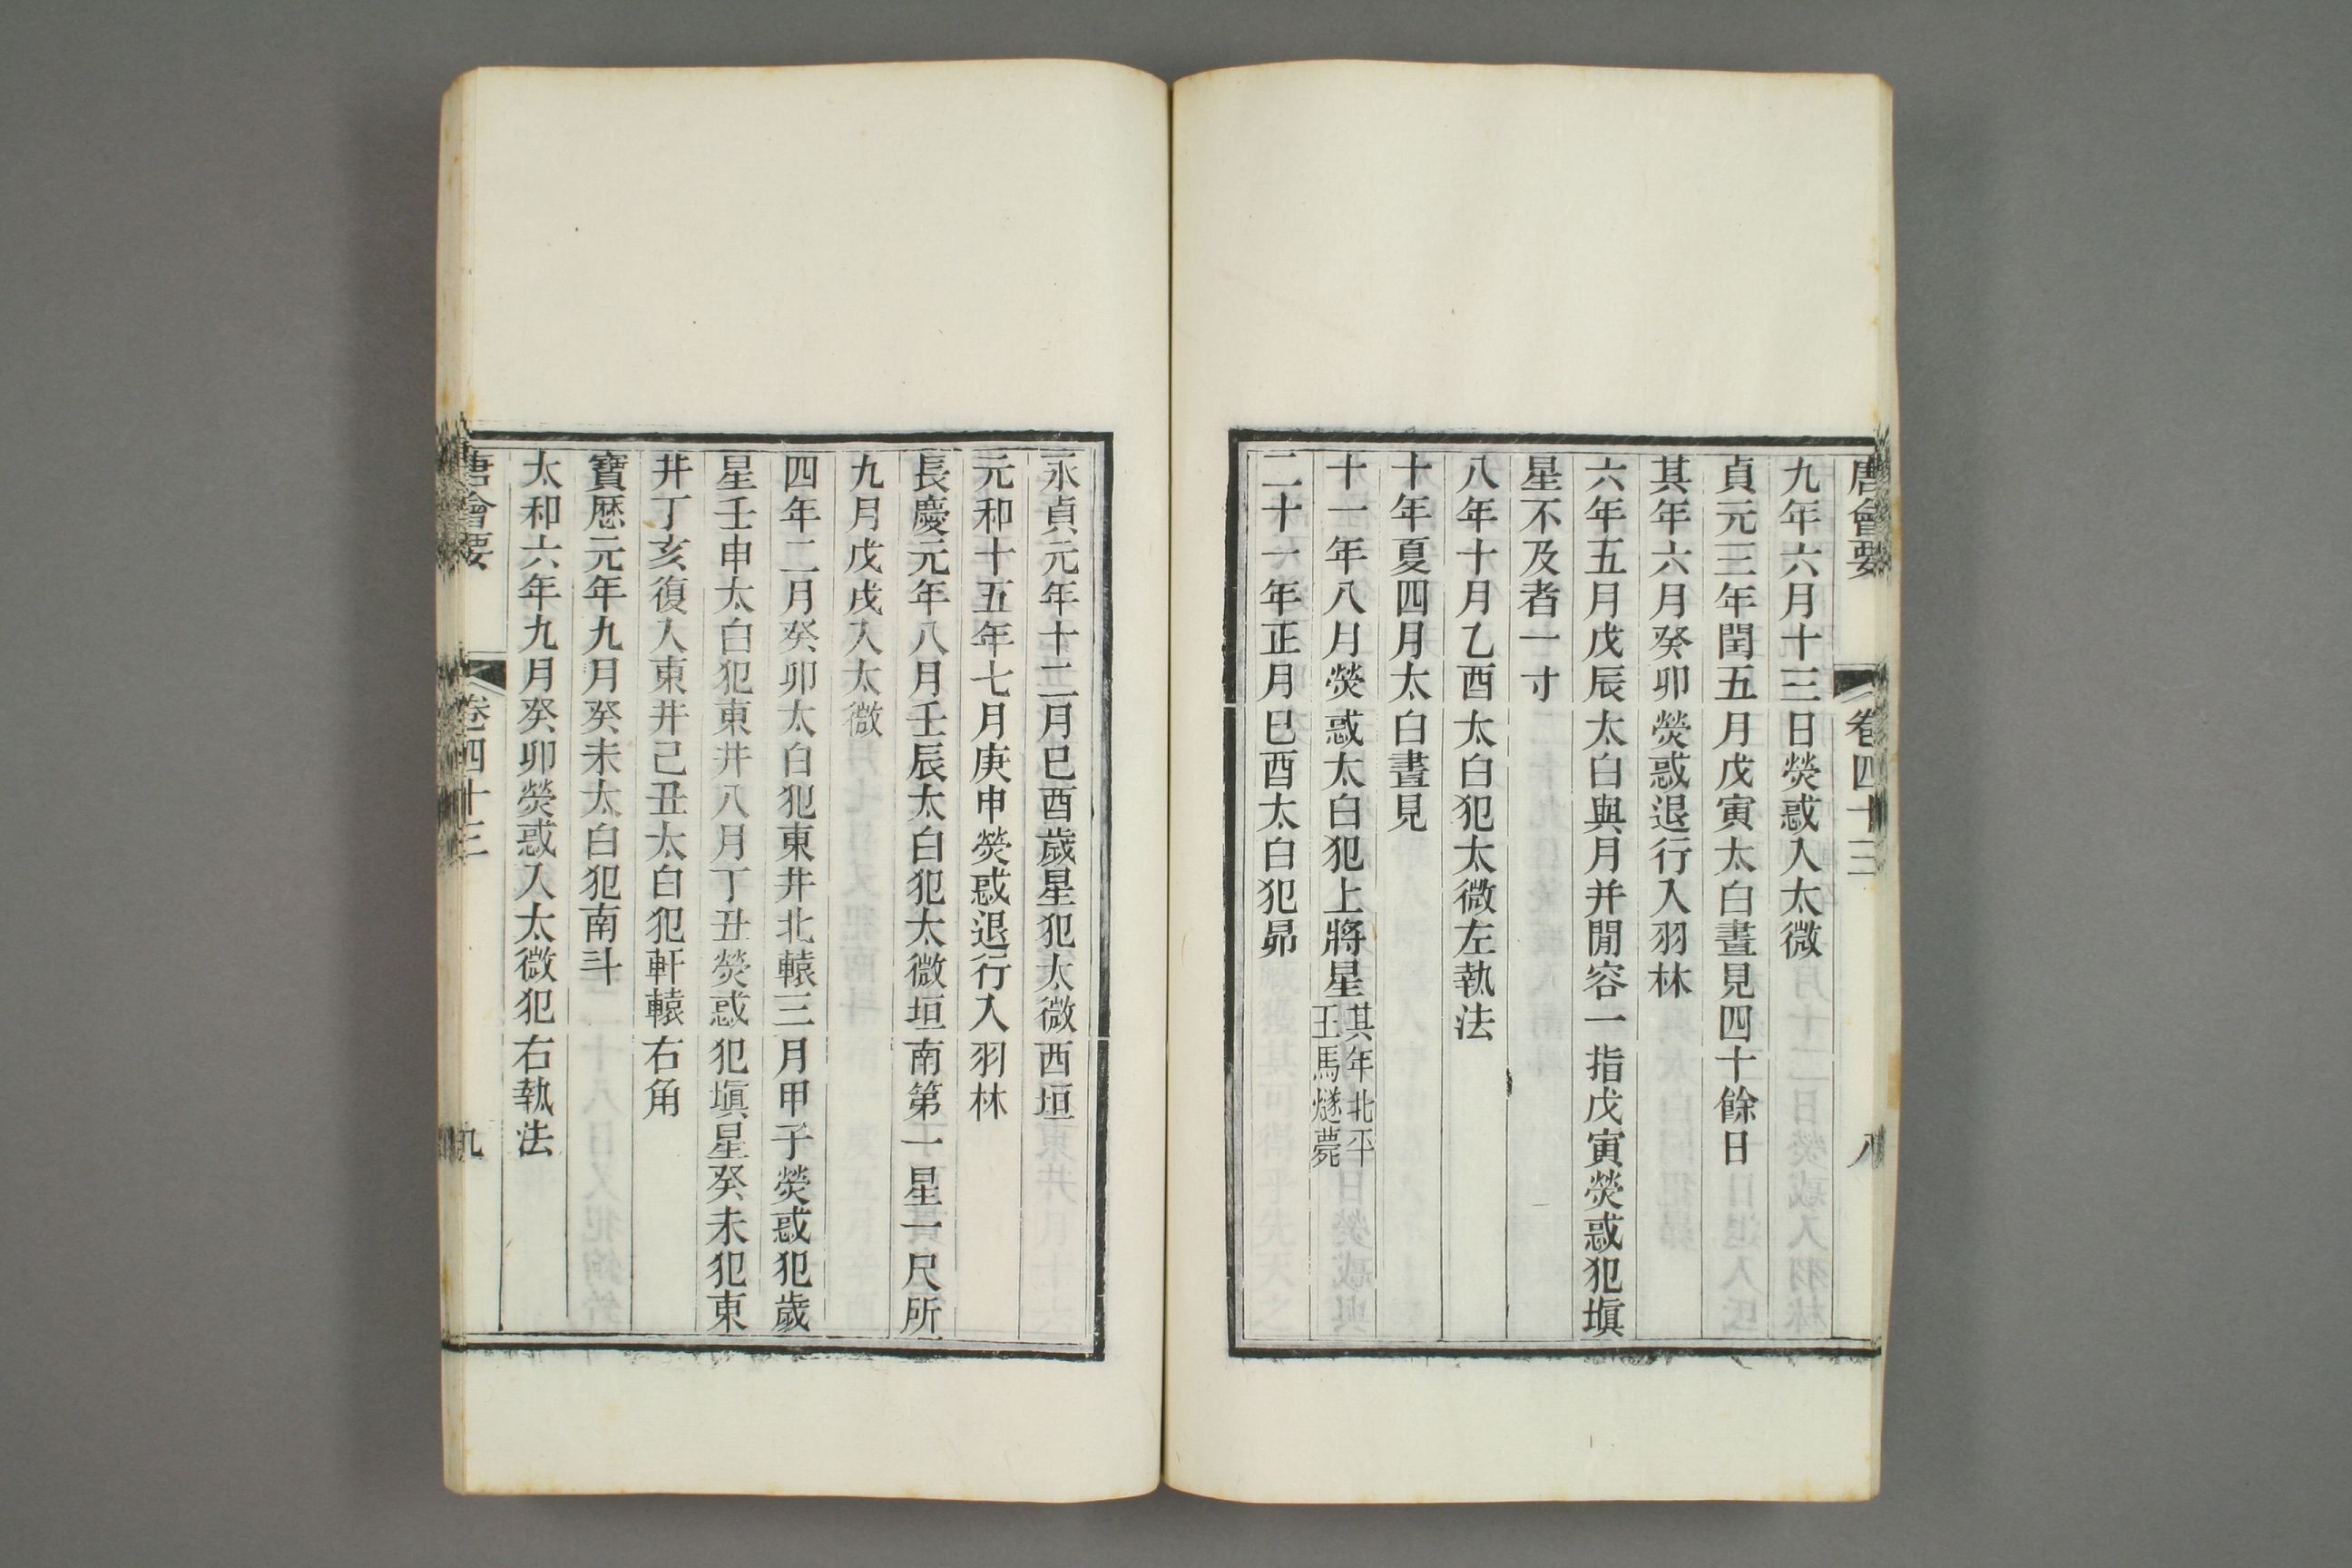 唐會要 卷四十三 八
九年六月十三日熒惑入太微
貞元三年閏五月戊寅太白晝見四十餘日
其年六月癸卯熒惑退行入羽林
六年五月戊辰太白與月并閒容一指戊寅熒惑犯塡
星不及者一寸
八年十月乙酉太白犯太微左執法
十年夏四月太白晝見
十一年八月熒惑太白犯上將星其年北平王馬燧薨
二十一年正月巳酉太白犯昴
永貞元年十二月巳酉歲星犯太微西垣
元和十五年七月庚申熒惑退行入羽林
長慶元年八月壬辰太白犯太微垣南第一星一尺所
九月戊戌入太微
四年二月癸卯太白犯東井北轅三月甲子熒惑犯歲
星壬申太白犯東井八月丁丑熒惑犯塡星癸未犯東
井丁亥復入東井己丑太白犯軒轅右角
寶歷元年九月癸未太白犯南斗
太和六年九月癸卯熒惑入太微犯右執法
唐會要 卷四十三 九